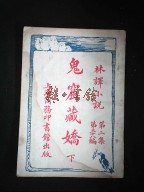 林譯小說
第二集
第三編
鬼窟藏嬌 下
上海商務印書館出版